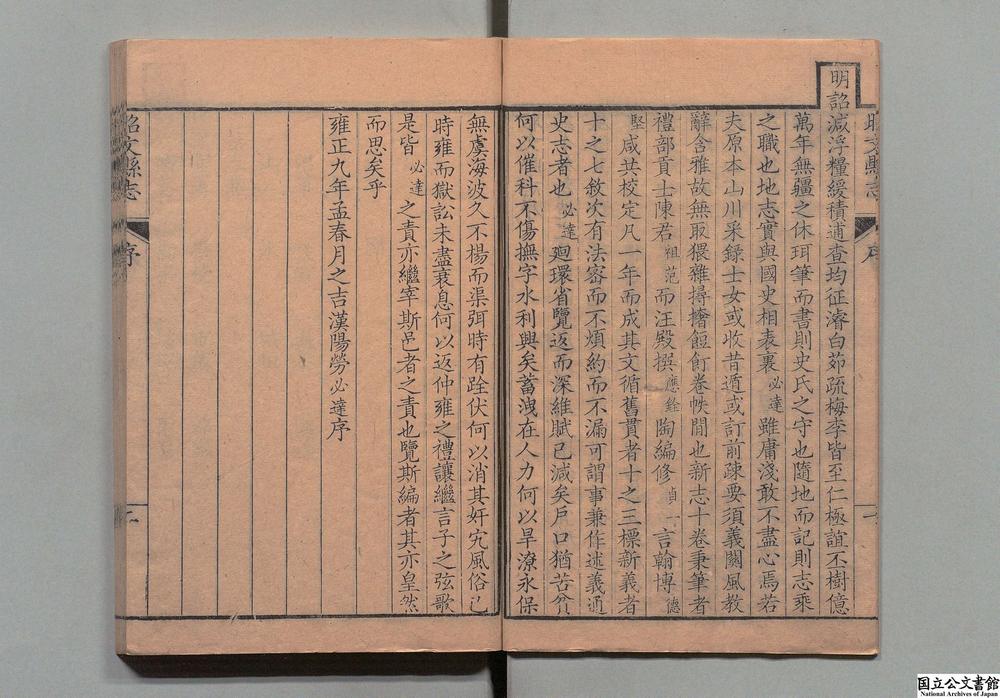 明詔減浮糧緩積逋查均征濬白茆疏梅李皆至仁極誼丕樹億
萬年無疆之休珥筆而書則史氏之守也隨地而記則志乘
之職也地志實與國史相表裏必達雖庸淺敢不盡心焉若
夫原本山川采録士女或收昔遁或訂前疎要須義關風教
辭含雅故無取猥雜撏撦餖飣卷帙閒也新志十卷秉筆者
禮部貢士陳君祖范而汪殿撰應銓陶編修貞一言翰博德
堅咸共校定凡一年而成其文循舊貫者十之三標新義者
十之七敘次有法密而不煩約而不漏可謂事兼作述義通
史志者也必達廻環省覽返而深維賦已減矣戶口猶苦貧
何以催科不傷撫字水利興矣蓄洩在人力何以旱潦永保
無虞海波久不楊而渠弭時有跧伏何以消其奸宄風俗已
時雍而獄訟未盡衰息何以返仲雍之禮讓繼言子之弦歌
是皆必達之責亦繼宰斯邑者之責也覽斯編者其亦皇然
而思矣乎
雍正九年孟春月之吉漢陽勞必達序
昭文縣志
序
二
国立公文書館
National Archives of Japan